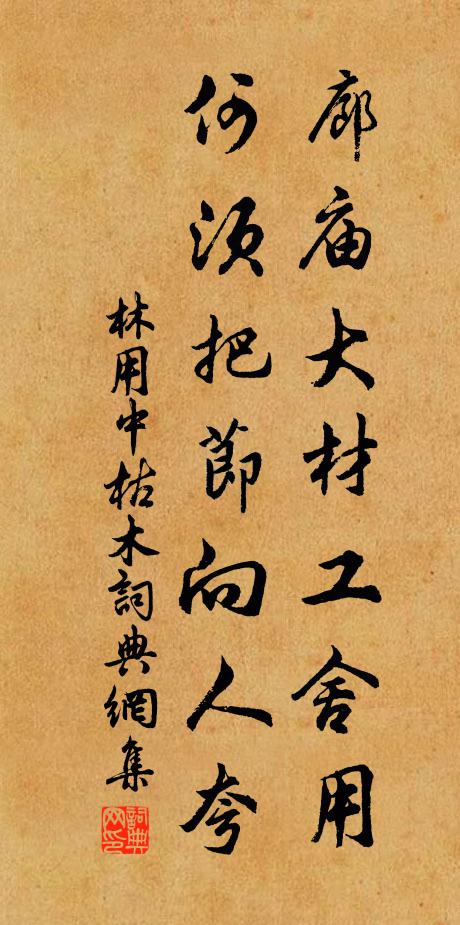 廊庙大材工舍用
何须把節向人夸
林用中枯木詞典網集
詞典网印